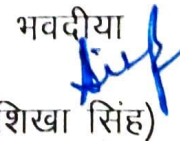 भवदीया
शिखा सिंह)